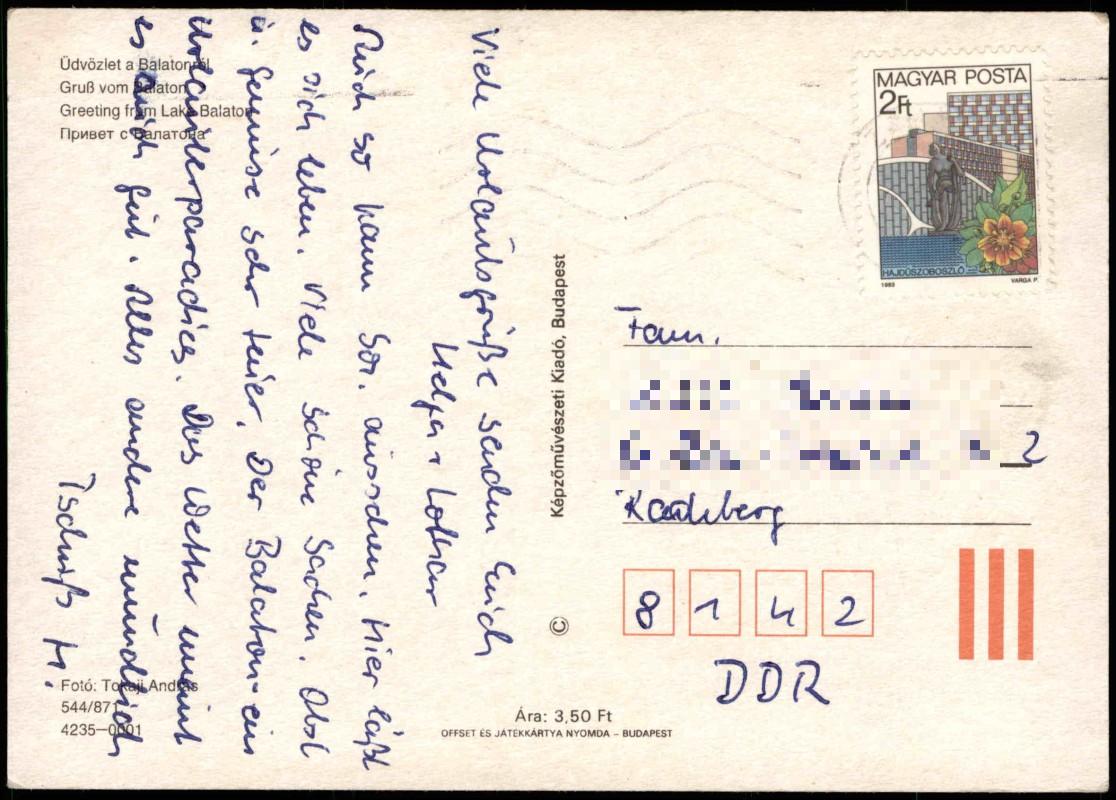 Üdvözlet a Balatonról
Gruß vom Balaton
Greeting from Lake Balaton
Привет с Балатона
Viele Urlaubsgrüße senden Euch
Helga + Lothar
so kann aussehen. Hier läßt
es sich leben. Viele schöne Sachen. Obst
u. Gemüse sehr teuer. Der Balaton - ein
Urlauberparadies. Das Wetter meint
es auch gut. Alles andere mündlich
Tschüß H.
Fotó: Tokaji András
544/871
4235–0001
Képzőművészeti Kiadó, Budapest
©
MAGYAR POSTA
2Ft
HAJDÚSZOBOSZLÓ
1983 VARGA P.
Fam.
2
Radeberg
8 1 4 2
DDR
Ára: 3,50 Ft
OFFSET ÉS JÁTÉKKÁRTYA NYOMDA – BUDAPEST